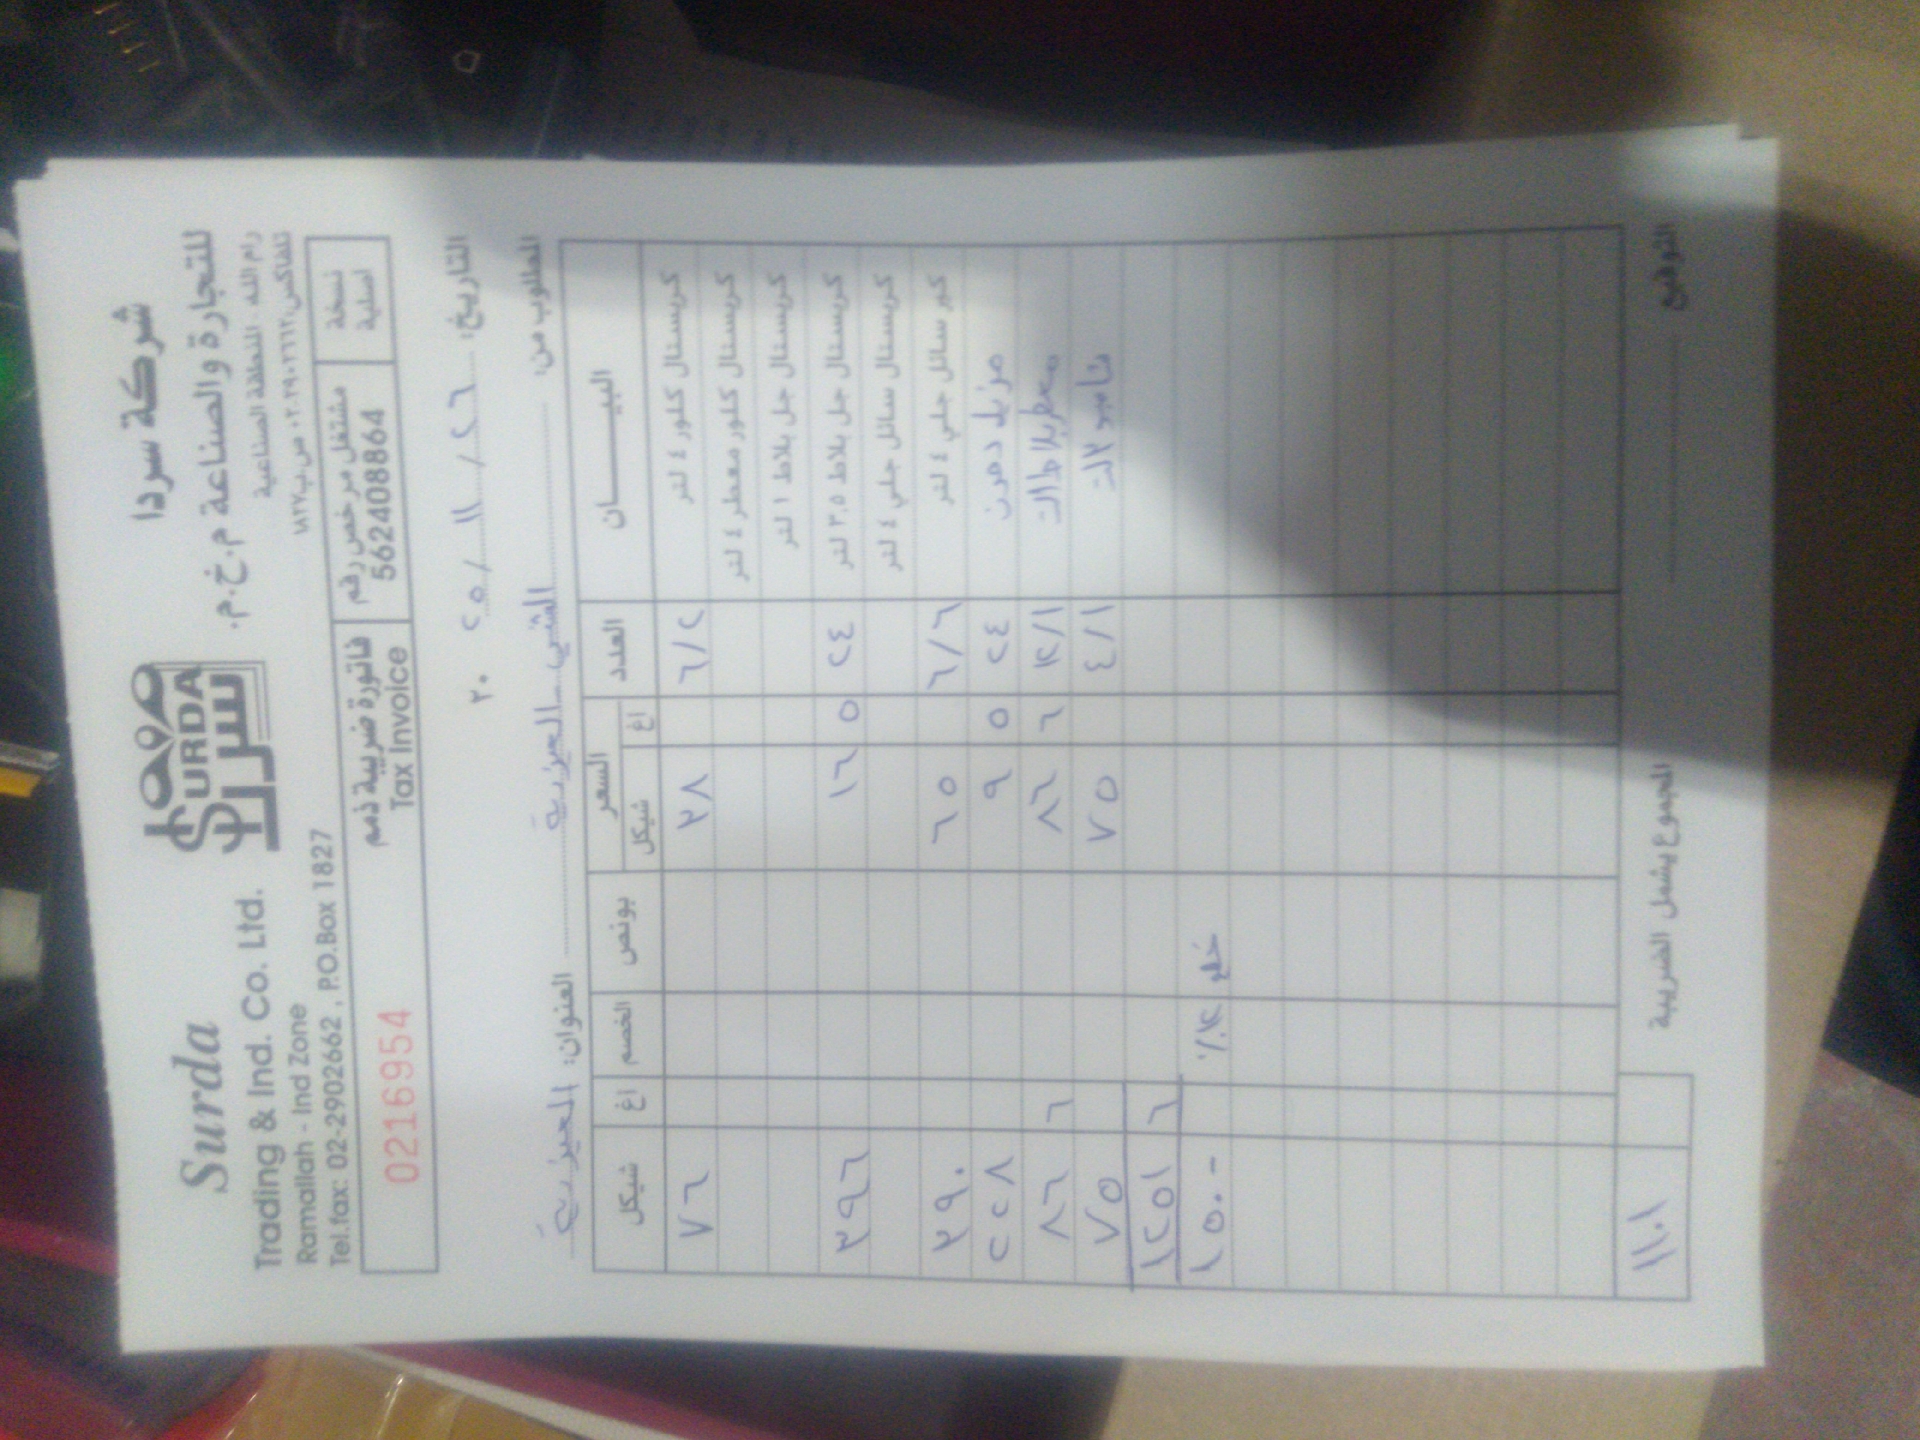 شركة سردا
للتجارة والصناعة م.خ.م.
رام الله - المنطقة الصناعية
SURDA
سردا
Surda
Trading & Ind. Co. Ltd.
Ramallah - Ind Zone
Tel.fax: 02-2902662 , P.O.Box 1827
نسخة اصلية
مشتغل مرخص رقم
562408864
فاتورة ضريبية ذمم
Tax Invoice
0216954
التاريخ: ٢٦ / ١١ / ٢٠٢٥
المطلوب من: العيزرية
العنوان: العيزرية
البيـــــان العدد السعر بونص الخصم اغ شيكل
شيكل اغ
كريستال كلور ٤ لتر ٦/٢ ٣٨ ٧٦
كريستال كلور معطر ٤ لتر
كريستال جل بلاط ١ لتر
كريستال جل بلاط ٣,٥ لتر ٢٤ ١٦ ٥ ٣٩٦
كريستال سائل جلي ٤ لتر
كير سائل جلي ٤ لتر ٦/٦ ٦٥ ٣٩٠
مزيل دهون ٢٤ ٩ ٥ ٢٢٨
معطر بلاط ١٢/١ ٨٦ ٦ ٨٦ ٦
٤/١ ٧٥ ٧٥
١٢٥١ ٦
خصم ١٢٪ ١٥٠-
المجموع يشمل الضريبة ١١٠١
التوقيع